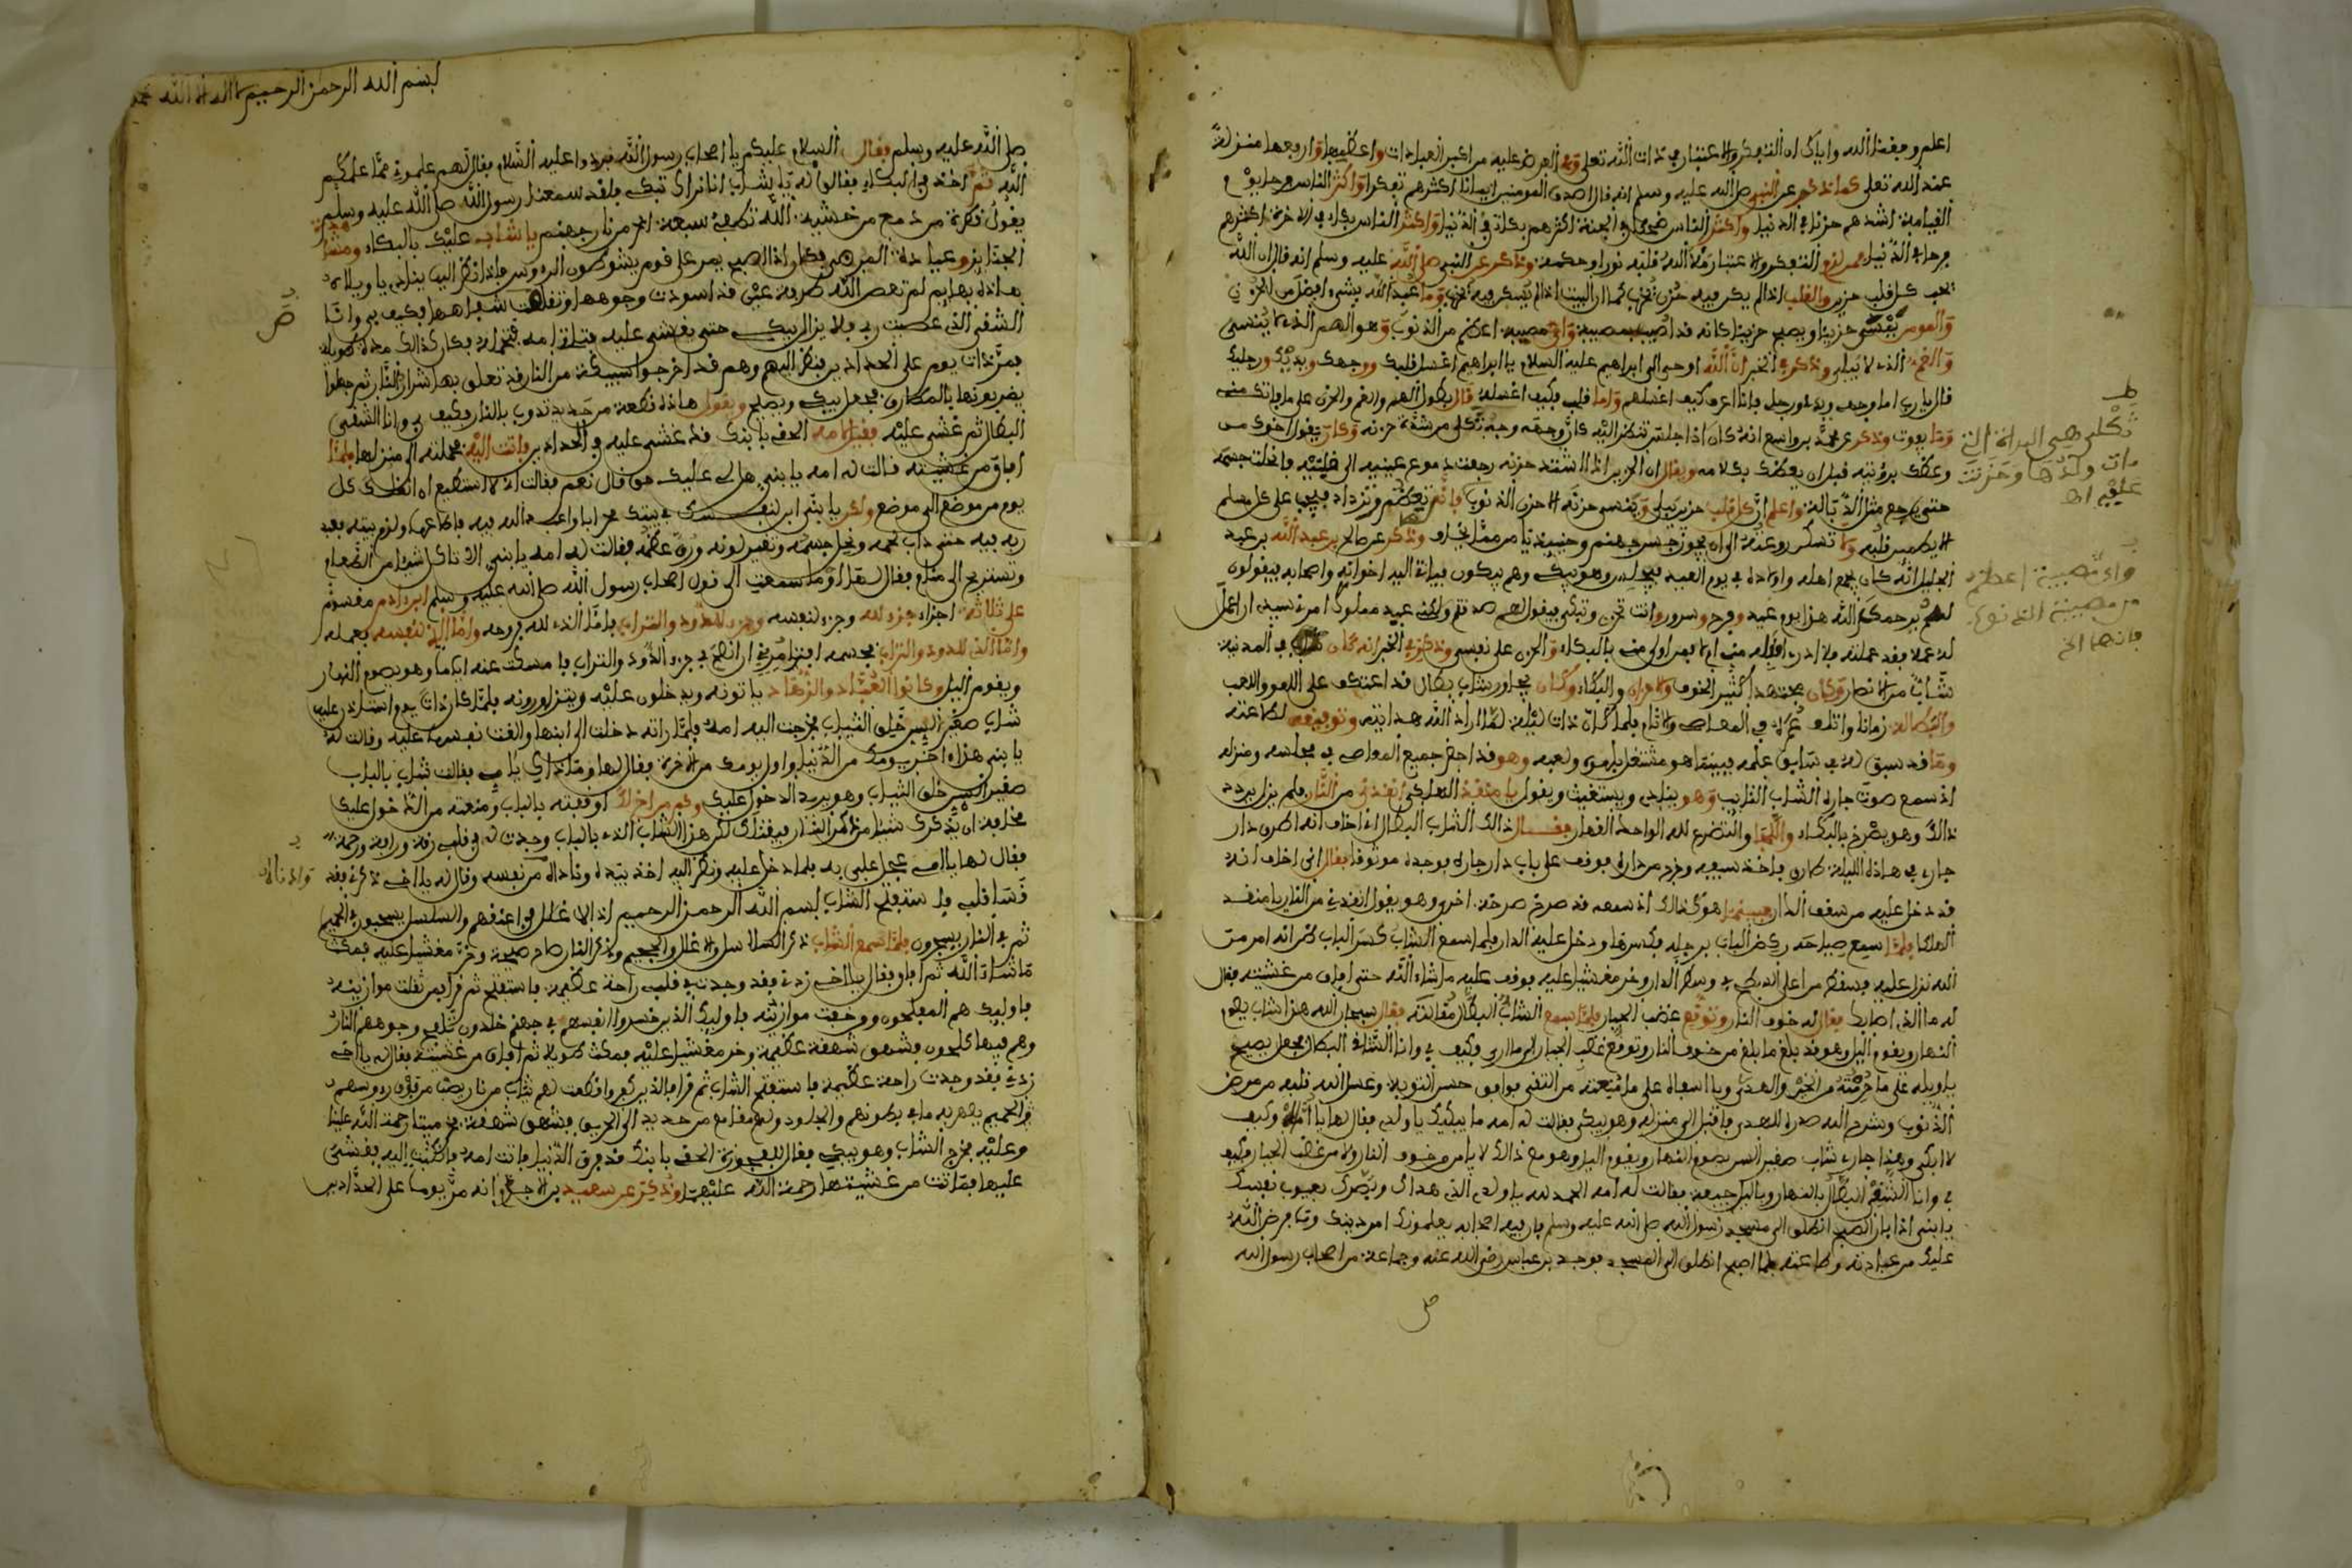 اعلم وفقنا الله واياك ان التفكر والاعتبار في ذات الله تعلى من اكبر العبادات واعظمها وارفعها منزلة
عند الله تعلى كما ذكر عن النبي صلى الله عليه وسلم انه قال اصدق المومنين ايمانا اكثرهم تفكرا واكثر الناس فرحا يوم
القيامة اشدهم حزنا في الدنيا واكثر الناس ضحكا في الجنة اكثرهم بكاء في الدنيا واكثر الناس بكاء في الاخرة اكثرهم
فرحا في الدنيا التفكر والاعتبار ملا الله قلبه نورا وحكمة وذكر عن النبي صلى الله عليه وسلم انه قال ان الله
يحب كل قلب حزين والقلب اذا لم يكن فيه حزن خرب كما ان البيت اذا لم يسكن فيه خرب وما عبد الله بشيء افضل من الحزن
والمومن يمسي حزينا ويصبح حزينا كانه قد اصيب بمصيبة واي مصيبة اعظم من الذنوب وهو الهم الذي لا ينسى
والغم الذي لا يبلى وذكر في الخبر ان الله اوحى الى ابراهيم عليه السلام يا ابراهيم اغسل قلبك ووجهك ويديك ورجليك
قال يا رب اما وجهي ويدي ورجلي فانا اعرف كيف اغسلهم واما قلبي فكيف اغسله قال بطول الهم والغم والحزن على ما فاتك مني
وما يفوت وذكر عن محمد بن واسع انه كان اذا جلس تنظر اليه كان وجهه وجه ثكلى من شدة حزنه وكان يقول اخوك من
وعظك برؤيته قبل ان يعظك بكلامه ويقال ان الحزين اذا اشتد حزنه رجعت دموع عينيه الى قلبه فانحلت جسمه
حتى يرجع مثل الذبالة واعلم ان كل قلب حزين يبلى وينسى حزنه الا حزن الذنوب فانه يعظم ويزداد فيجب على كل مسلم
الا يطمين قلبه ولا تسكن روعته الى ان يجوز جسر جهنم وحينئذ يامن مما يخاف وذكر عن صالح بن عبد الله بن عبد
الجليل انه كان يجمع اهله واولاده في يوم العيد فيجلس وهو يبكي وهم يبكون فياتي اليه اخوانه واصحابه فيقولون
له يرحمك الله هذا يوم عيد وفرح وسرور وانت تحزن وتبكي فيقول لهم صدقتم ولكني عبد مملوك امرني سيدي ان اعمل
له عملا فقد عملته فلا ادري اقبله مني ام لا فمن اولى مني بالبكاء والحزن على نفسي وذكر في الخبر انه كان في المدينة
شاب من الانصار وكان مجتهدا كثير الخوف والاحزان والبكاء وكان يجاوره شاب بطال قد اعتكف على اللهو واللعب
والبطالة زمانا واتلف عمره في المعاصي والاثام فلما كان ذات ليلة لما اراد الله هدايته وتوفيقه لطاعته
وما قد سبق له في سابق علمه فبينما هو مشتغل بلهوه ولعبه وهو قد اجمع جميع المعاصي في مجلسه ومنزله
اذ سمع صوت جاره الشاب التايب وهو ينادي ويستغيث ويقول يا منقذ الهلكى انقذني من النار فلم يزل يردد
ذالك وهو يصرخ بالبكاء والتضرع لله الواحد القهار فقال ذالك الشاب البطال اني اخاف انه اطرق دار
جاري في هاذه الليلة طارق فاخذ سيفه وخرج من داره فوقف على باب دار جاره فوجده موثوقا فقال اني اخاف انه
قد دخل عليه من سقف الدار فبينما هو كذالك اذ سمعه قد صرخ صرخة اخرى وهو يقول انقذني من النار يا منقذ
الهلكا فلما سمع صياحه ركض الباب برجله فكسرها ودخل عليه الدار فلما سمع الشاب كسر الباب ظن انه امر من
الله نزل عليه فسقط من اعلى السطح في وسط الدار وخر مغشيا عليه فوقف عليه ما شاء الله حتى افاق من غشيته فقال
له ما الذي اصابك فقال له خوف النار وتوقع غضب الجبار فلما سمع الشاب البطال مقالته فقال سبحان الله هذا شاب يصوم
النهار ويقوم اليل وهو قد بلغ ما بلغ من خوف النار وتوقع غضب الجبار فكيف بي وانا الشاب البطال فجعل يصيح
يا ويله على ما حرمته من الخير والهدى ويا اسفاه على ما منعته من التقى فوافق حسن التوبة وغسل الله قلبه من مرض
الذنوب وشرح الله صدره للهدى فاقبل الى منزله وهو يبكي فقالت له امه ما يبكيك يا ولدي فقال لها يا اماه وكيف
لا ابكي وهذا جاري شاب صغير السن يصوم النهار ويقوم اليل وهو مع ذالك لا يامن من خوف النار ولا من غضب الجبار فكيف
بي وانا الشقي البطال بالنهار وباليل جميعه فقالت له امه الحمد لله يا ولدي الذي هداك وبصرك بعيوب نفسك
يا بني اذا بان الصبح انطلق الى مسجد رسول الله صلى الله عليه وسلم فان فيه اصحابه يعلمونك امر دينك وما فرض الله
عليك من عبادته وطاعته فلما اصبح انطلق الى المسجد فوجد بن عباس رضي الله عنه وجماعة من اصحاب رسول الله
ثكلى هي المراة التي
مات ولدها وحزنت
عليه اه
واي مصيبة اعظم
من مصيبة الذنوب
فانها الخ
بسم الله الرحمن الرحيم لا اله الا الله محمد
صلى الله عليه وسلم فقال السلام عليكم يا اصحاب رسول الله فردوا عليه السلام فقال لهم علموني مما علمكم
الله ثم اخذ في البكاء فقالوا له يا شاب انا نراك تبكي فلقد سمعنا رسول الله صلى الله عليه وسلم
يقول قطرة من دمع من خشية الله تطفئ سبعة ابحر من نار جهنم يا شاب عليك بالبكاء
الجنايز وعيادة المرضى فكان اذا اصبح يمر على قوم يشوطون الروس فاذا نظر اليها ينادي يا ويلاه
هاذه بهايم لم تعص الله طرفة عين قد اسودت وجوهها وتقلصت شفاهها فكيف بي وانا
الشقي الذي عصيت ربي فلا يزال يبكي حتى يغشى عليه فتاتي امه فتحمله فكان كذالك مدة طويلة
فمر ذات يوم على الحدادين فنظر اليهم وهم قد اخرجوا سبيكة من النار قد تعلق بها شرار النار ثم جعلوا
يضربونها بالمطارق فجعل يبكي ويصيح ويقول هاذه قطعة من حديد تذوب بالنار فكيف بي وانا الشقي
البطال ثم غشي عليه فقيل لامه الحقي بابنك قد غشي عليه في الحدادين فاتت اليه فحملته الى منزلها فلما
افاق من غشيته قالت له امه يا بني هل لي عليك حق قال نعم فقالت له لا استطيع ان انقلك كل
يوم من موضع الى موضع ولكن يا بني ابن لنفسك في بيتك محرابا واعبد الله فيه فاطاعها ولزم بيته يعبد
ربه فيه حتى ذاب لحمه ونحل جسمه وتغير لونه ورق عظمه فقالت له امه يا بني الا تاكل شيئا من الطعام
وتستريح الى منام فقال لها او ما سمعت الى قول اصحاب رسول الله صلى الله عليه وسلم ابن ادم مقسوم
على ثلاثة اجزاء جزء لله وجزء لنفسه وجزء للدود والتراب فاما الذي لله فروحه واما الذي لنفسه فعمله
واما الذي للدود والتراب فجسمه ان اتهم في جزء الدود والتراب فامسكت عنه اياما وهو يصوم النهار
ويقوم اليل وكانوا العباد والزهاد ياتونه ويدخلون عليه ويتزاورونه فلما كان ذات يوم استاذن عليه
شاب صغير السن خلق الثياب فخرجت اليه امه فلما راته دخلت الى ابنها والقت نفسها عليه وقالت له
يا بني هذا اخر يومك من الدنيا واول يومك من الاخرة فقال لها وما ذاك يا امي فقالت شاب بالباب
صغير السن خلق الثياب وهو يريد الدخول عليك وكم من اخ لك اوقفته بالباب ومنعته من الدخول عليك
مخافة ان يذكرك شيئا من ذكر النار فيقتلك لكن هذا الشاب الذي بالباب وجدت له في قلبي رقة ورافة ورحمة
فقال لها يا امي عجل علي به فلما دخل عليه ونظر اليه اخذ بيده وناداه من نفسه وقال له يا اخي ذكرني فقد
قسا قلبي فاستفتح الشاب بسم الله الرحمن الرحيم اذ الاغلال في اعناقهم والسلاسل يسحبون في الحميم
ثم في النار يسجرون فلما سمع الشاب ذكر السلاسل والاغلال والجحيم وذكر النار صاح صيحة وخر مغشيا عليه فمكث
ما شاء الله ثم افاق وقال يا اخي زدني فقد وجدت في قلبي راحة عظيمة فاستفتح ثم قرا فمن ثقلت موازينه
فاوليك هم المفلحون ومن خفت موازينه فاوليك الذين خسروا انفسهم في جهنم خلدون تلفح وجوههم النار
وهم فيها كلحون فشهق شهقة عظيمة وخر مغشيا عليه فمكث طويلا ثم افاق من غشيته فقال له يا اخي
زدني فقد وجدت راحة عظيمة فاستفتح الشاب ثم قرا فالذين كفروا قطعت لهم ثياب من نار يصب من فوق رءوسهم
الحميم يصهر به ما في بطونهم والجلود ولهم مقامع من حديد الى الحريق فشهق شهقة فخر ميتا رحمة الله علينا
وعليه فخرج الشاب وهو يبكي فقال للعجوز الحقي بابنك قد فرق الدنيا فاتت امه فانكبت اليه فغشي
عليها فماتت من غشيتها رحمة الله عليهما وذكر عن سعيد انه مر يوما على الحدادين